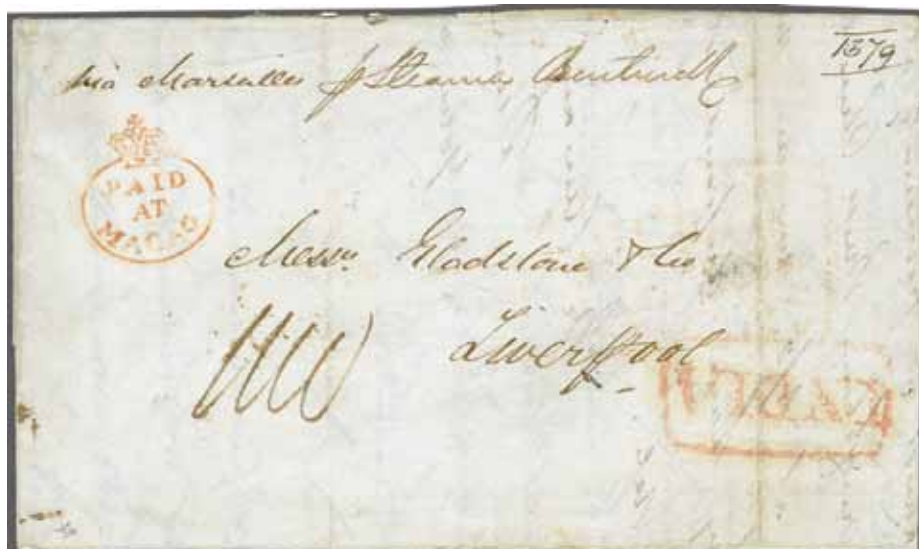 1579
via Marseilles p Steamer Bentinck
PAID
AT
MACAO
Messrs Gladstone & Co
Liverpool